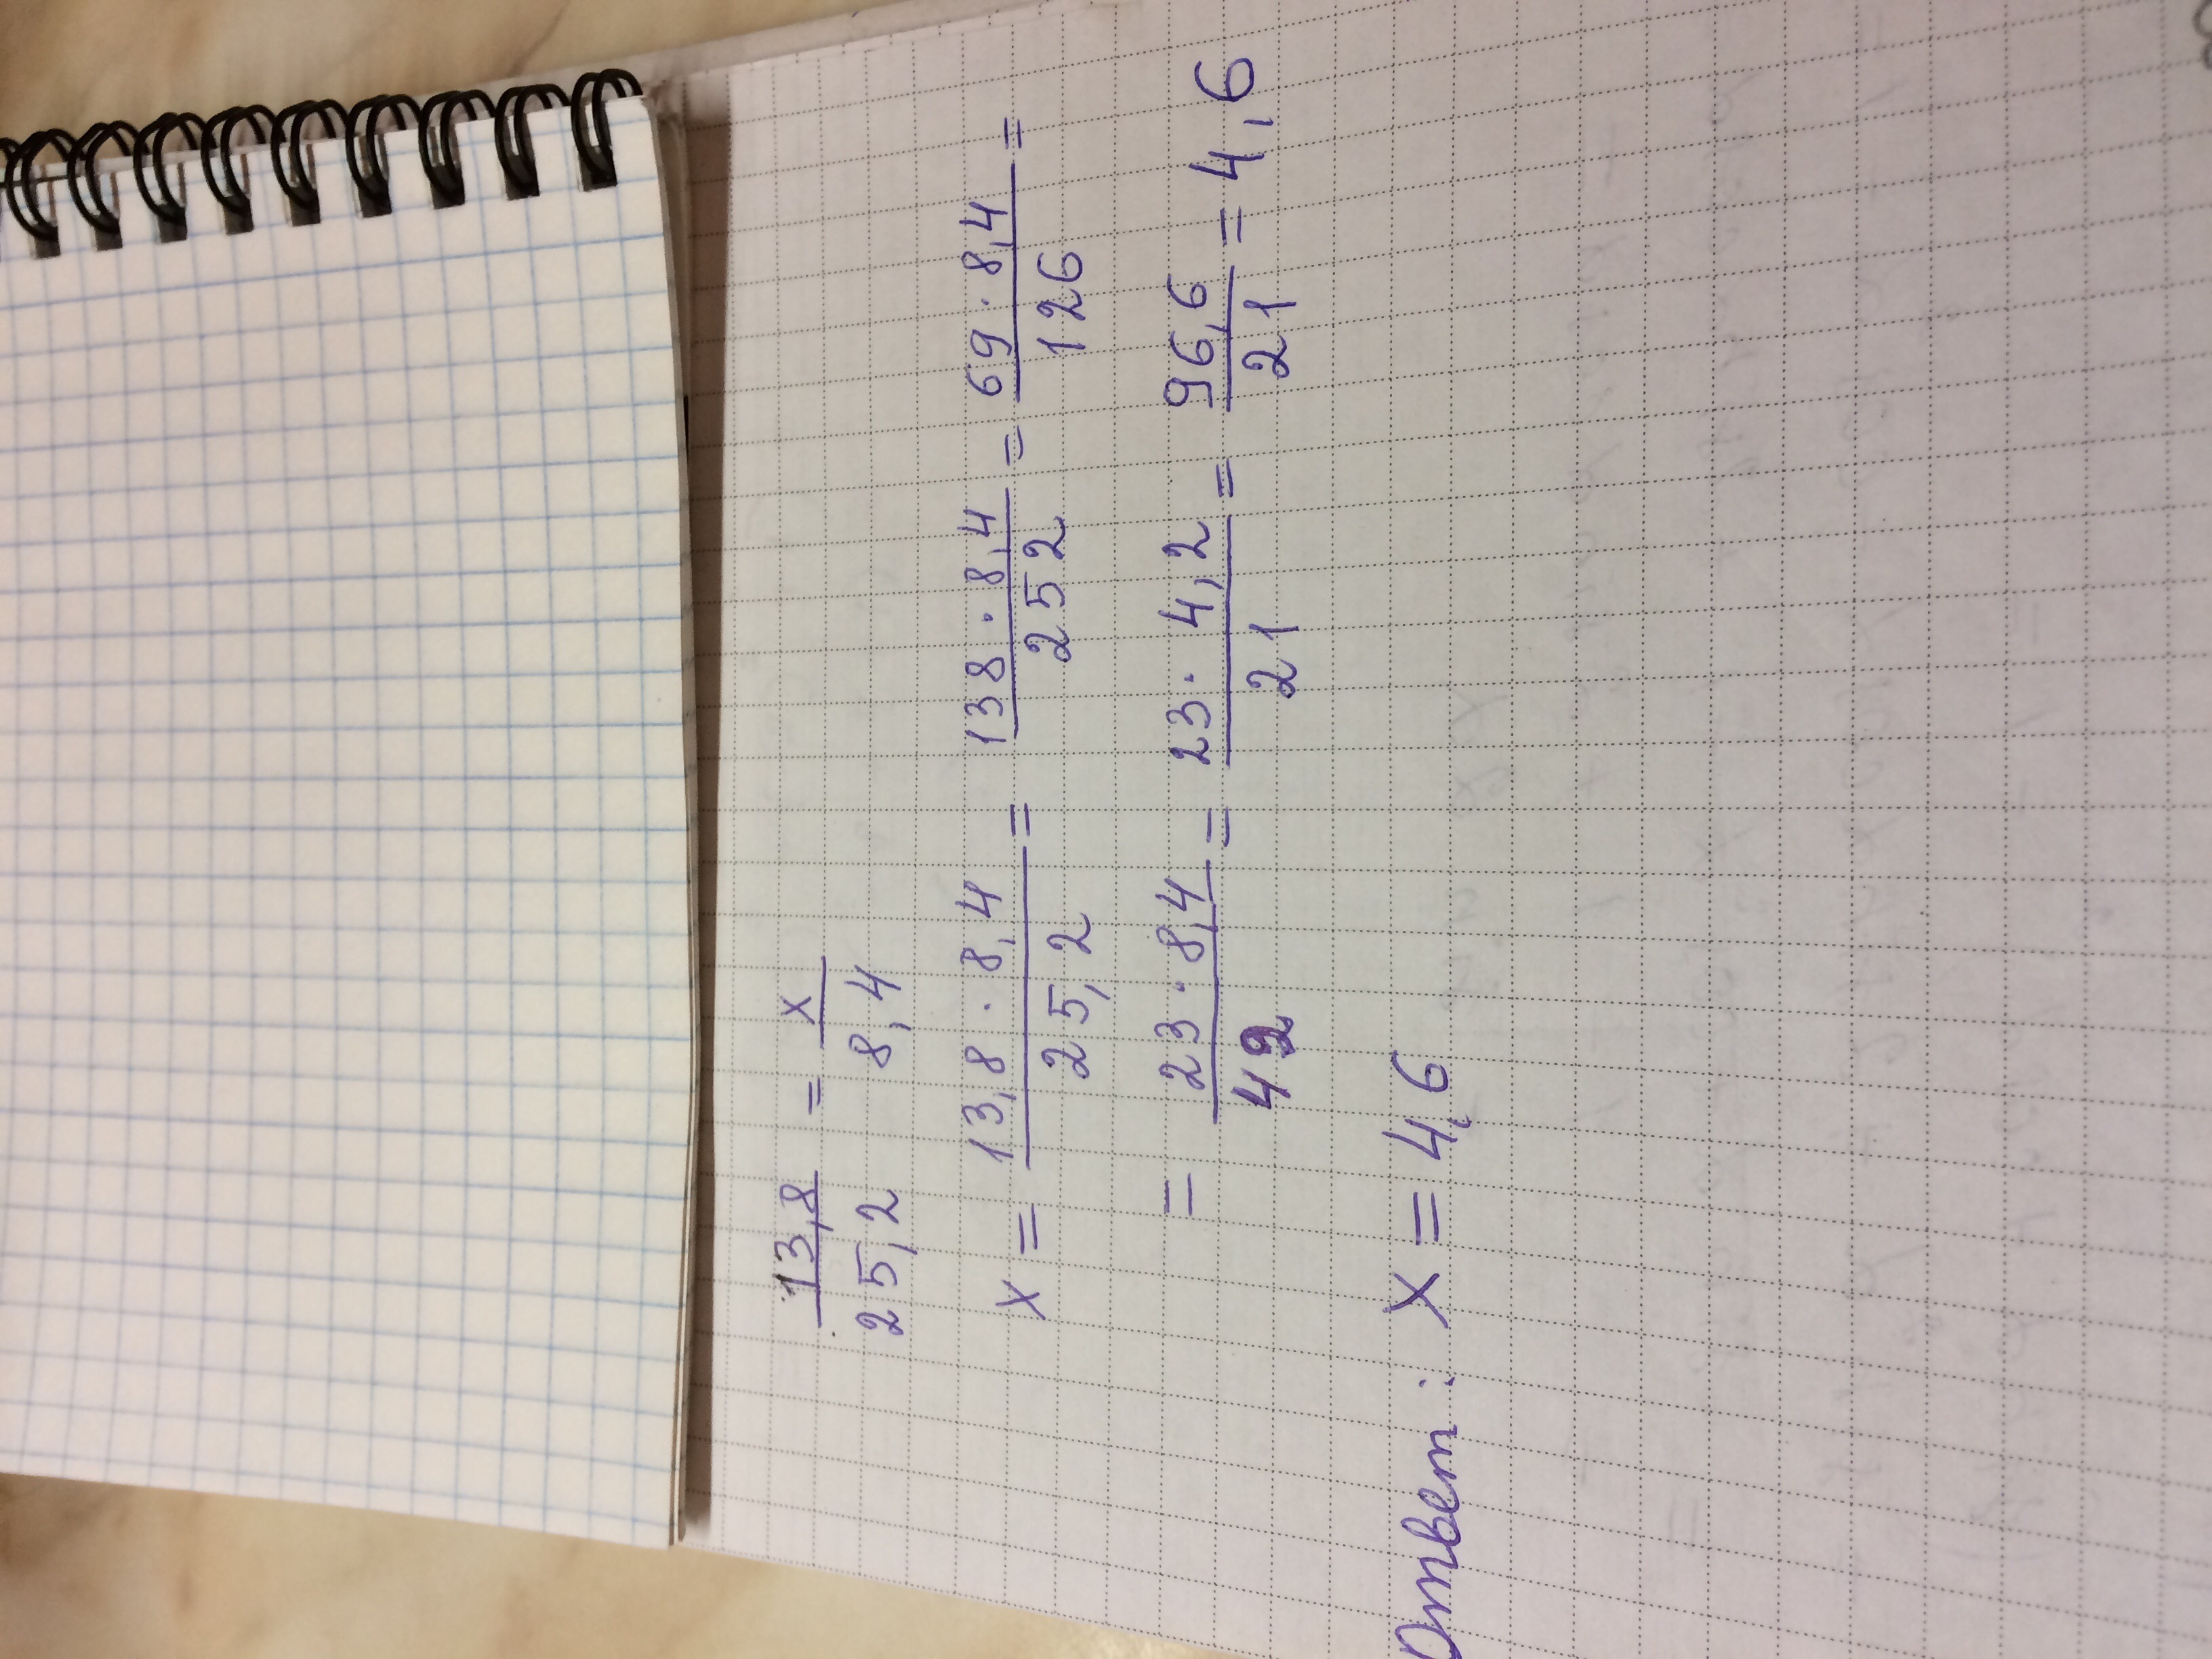 13,8/25,2 = x/8,4
x = 13,8 · 8,4/25,2 = 138 · 8,4/252 = 69 · 8,4/126 =
= 23 · 8,4/42 = 23 · 4,2/21 = 96,6/21 = 4,6
Ответ: x = 4,6